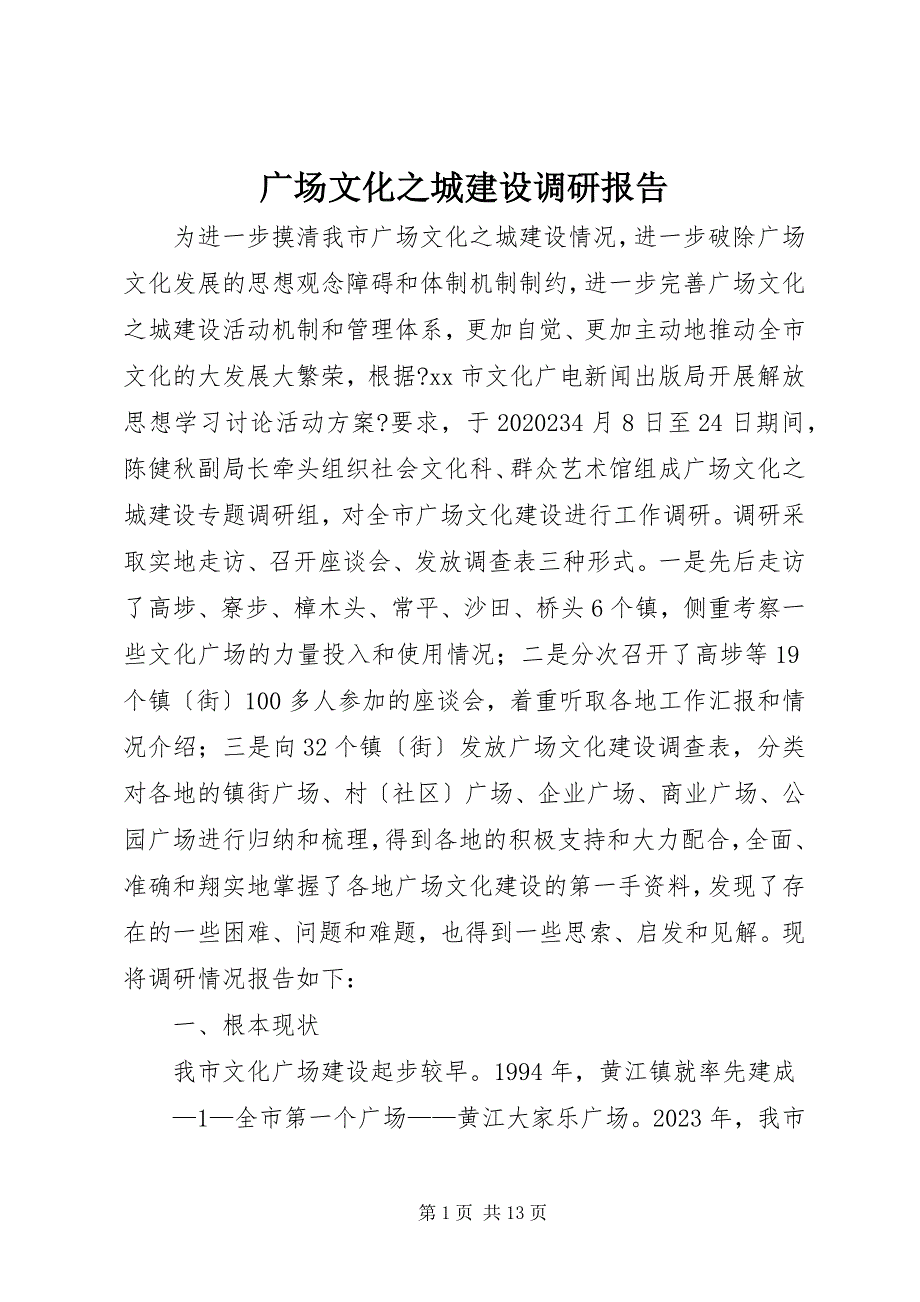 广场文化之城建设调研报告
为进一步摸清我市广场文化之城建设情况，进一步破除广场
文化发展的思想观念障碍和体制机制制约，进一步完善广场文化
之城建设活动机制和管理体系，更加自觉、更加主动地推动全市
文化的大发展大繁荣，根据?xx 市文化广电新闻出版局开展解放
思想学习讨论活动方案?要求，于 2020234 月 8 日至 24 日期间，
陈健秋副局长牵头组织社会文化科、群众艺术馆组成广场文化之
城建设专题调研组，对全市广场文化建设进行工作调研。调研采
取实地走访、召开座谈会、发放调查表三种形式。一是先后走访
了高埗、寮步、樟木头、常平、沙田、桥头 6 个镇，侧重考察一
些文化广场的力量投入和使用情况；二是分次召开了高埗等 19
个镇〔街〕100 多人参加的座谈会，着重听取各地工作汇报和情
况介绍；三是向 32 个镇〔街〕发放广场文化建设调查表，分类
对各地的镇街广场、村〔社区〕广场、企业广场、商业广场、公
园广场进行归纳和梳理，得到各地的积极支持和大力配合，全面、
准确和翔实地掌握了各地广场文化建设的第一手资料，发现了存
在的一些困难、问题和难题，也得到一些思索、启发和见解。现
将调研情况报告如下：
一、根本现状
我市文化广场建设起步较早。1994 年，黄江镇就率先建成
—1—全市第一个广场——黄江大家乐广场。2023 年，我市
第 1 页 共 13 页